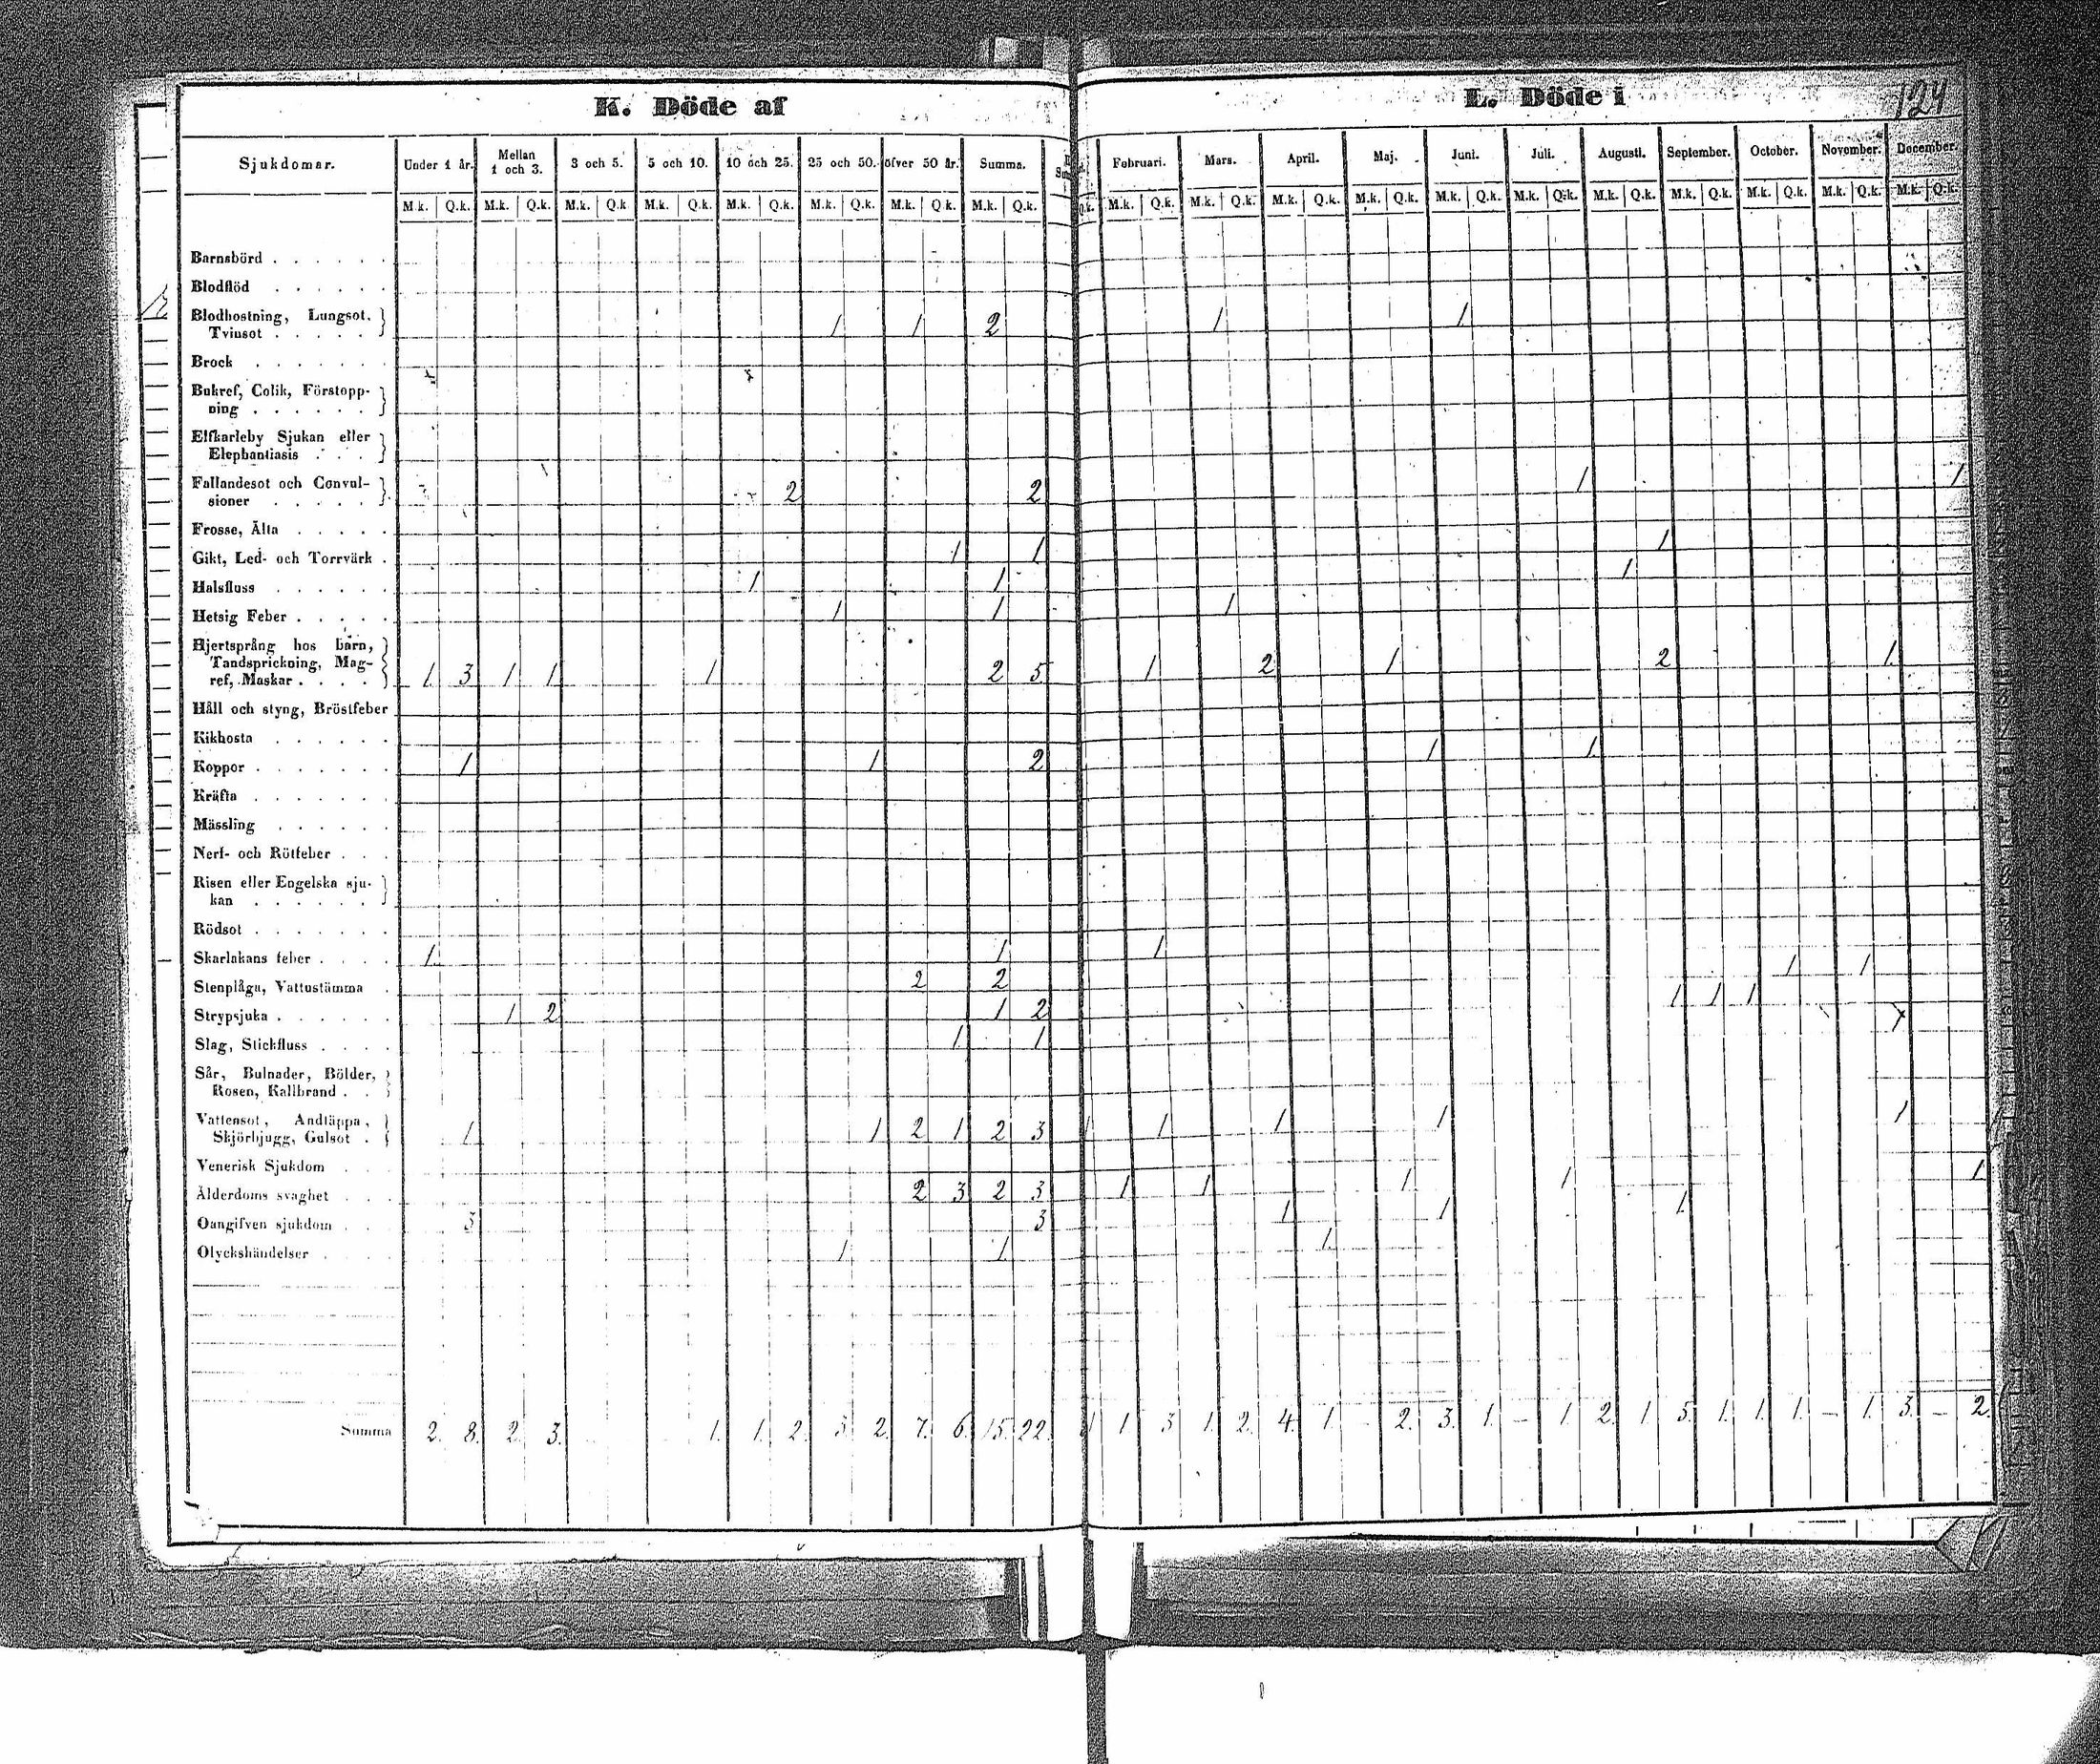 K. Döde af
L. Döde i
124
Sjukdomar. Under 1 år. Mellan 1 och 3. 3 och 5. 5 och 10. 10 och 25. 25 och 50. öfver 50 år. Summa.
Februari. Mars. April. Maj. Juni. Juli. Augusti. September. October. November. December.
M.k. Q.k. M.k. Q.k. M.k. Q.k M.k. Q.k. M.k. Q.k. M.k. Q.k. M.k. Q.k. M.k. Q.k.
Q.k. M.k. Q.k. M.k. Q.k. M.k. Q.k. M.k. Q.k. M.k. Q.k. M.k. Q.k. M.k. Q.k. M.k. Q.k. M.k. Q.k. M.k. Q.k. M.k. Q.k.
Barnsbörd
Blodflöd
Blodhostning, Lungsot,
Tvinsot 1 1 2 1 1
Brock
Bukref, Colik, Förstopp-
ning
Elfkarleby Sjukan eller
Elephantiasis
Fallandesot och Convul-
sioner 2 2 1 1
Frosse, Älta
Gikt, Led- och Torrvärk 1 1 1
Halsfluss 1 1 1
Hetsig Feber 1 1 1
Hjertsprång hos barn,
Tandsprickning, Mag-
ref, Maskar 1 3 1 1 1 2 5 1 2 1 2 1
Håll och styng, Bröstfeber
Kikhosta
Koppor 1 1 2 1 1
Kräfta
Mässling
Nerf- och Rötfeber
Risen eller Engelska sju-
kan
Rödsot
Skarlakans feber 1 1 1
Stenplåga, Vattustämma 2 2 1 1
Strypsjuka 1 2 1 2 1 1 1
Slag, Stickfluss 1 1
Sår, Bulnader, Bölder,
Rosen, Kallbrand
Vattensot, Andtäppa,
Skjörbjugg, Gulsot 1 1 2 1 2 3 1 1 1 1 1
Venerisk Sjukdom
Ålderdoms svaghet 2 3 2 3 1 1 1 1 1
Oangifven sjukdom 3 3 1 1 1
Olyckshändelser 1 1 1
Summa 2. 8. 2. 3. 1. 1. 2. 3 2. 7. 6. 15. 22. 1 1 3 1. 2. 4. 1. - 2. 3. 1. - 1. 2. 1 1. 1. 1. - 1. 3. - 2.